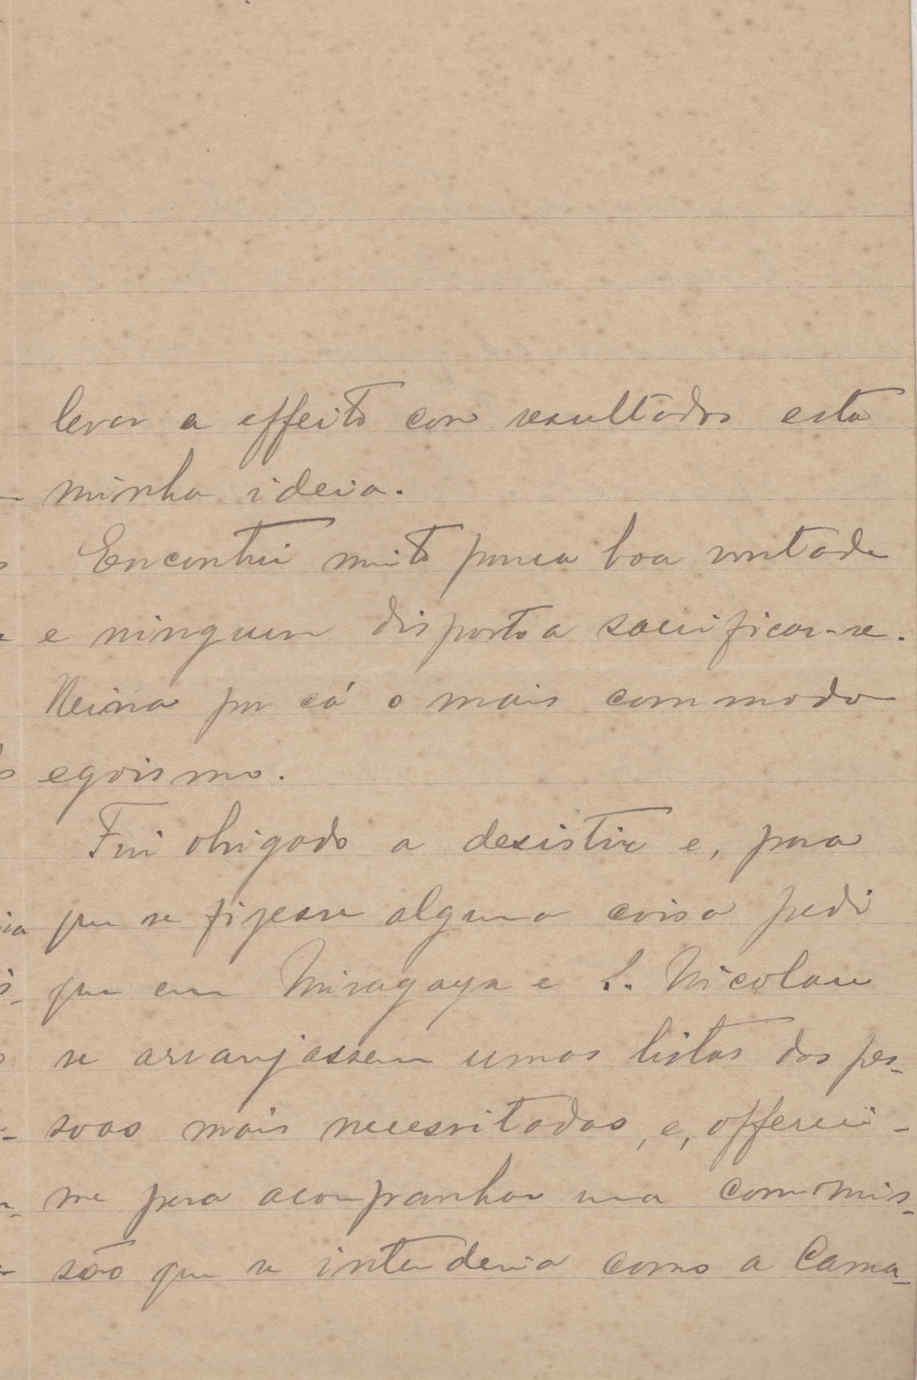 levar a effeito com resultados esta
minha ideia.
Encontrei muito pouca boa vontade
e ninguem disposto a sacrificar-se.
Reina por cá o mais commodo
egoismo.
Fui obrigado a desistir e, para
que se fizesse alguma coisa pedi
que em Miragaya e S. Nicolau
se arranjassem umas listas das pes-
soas mais necessitadas, e, offereci-
me para acompanhar uma commis-
são que se intenderia com a Cama-